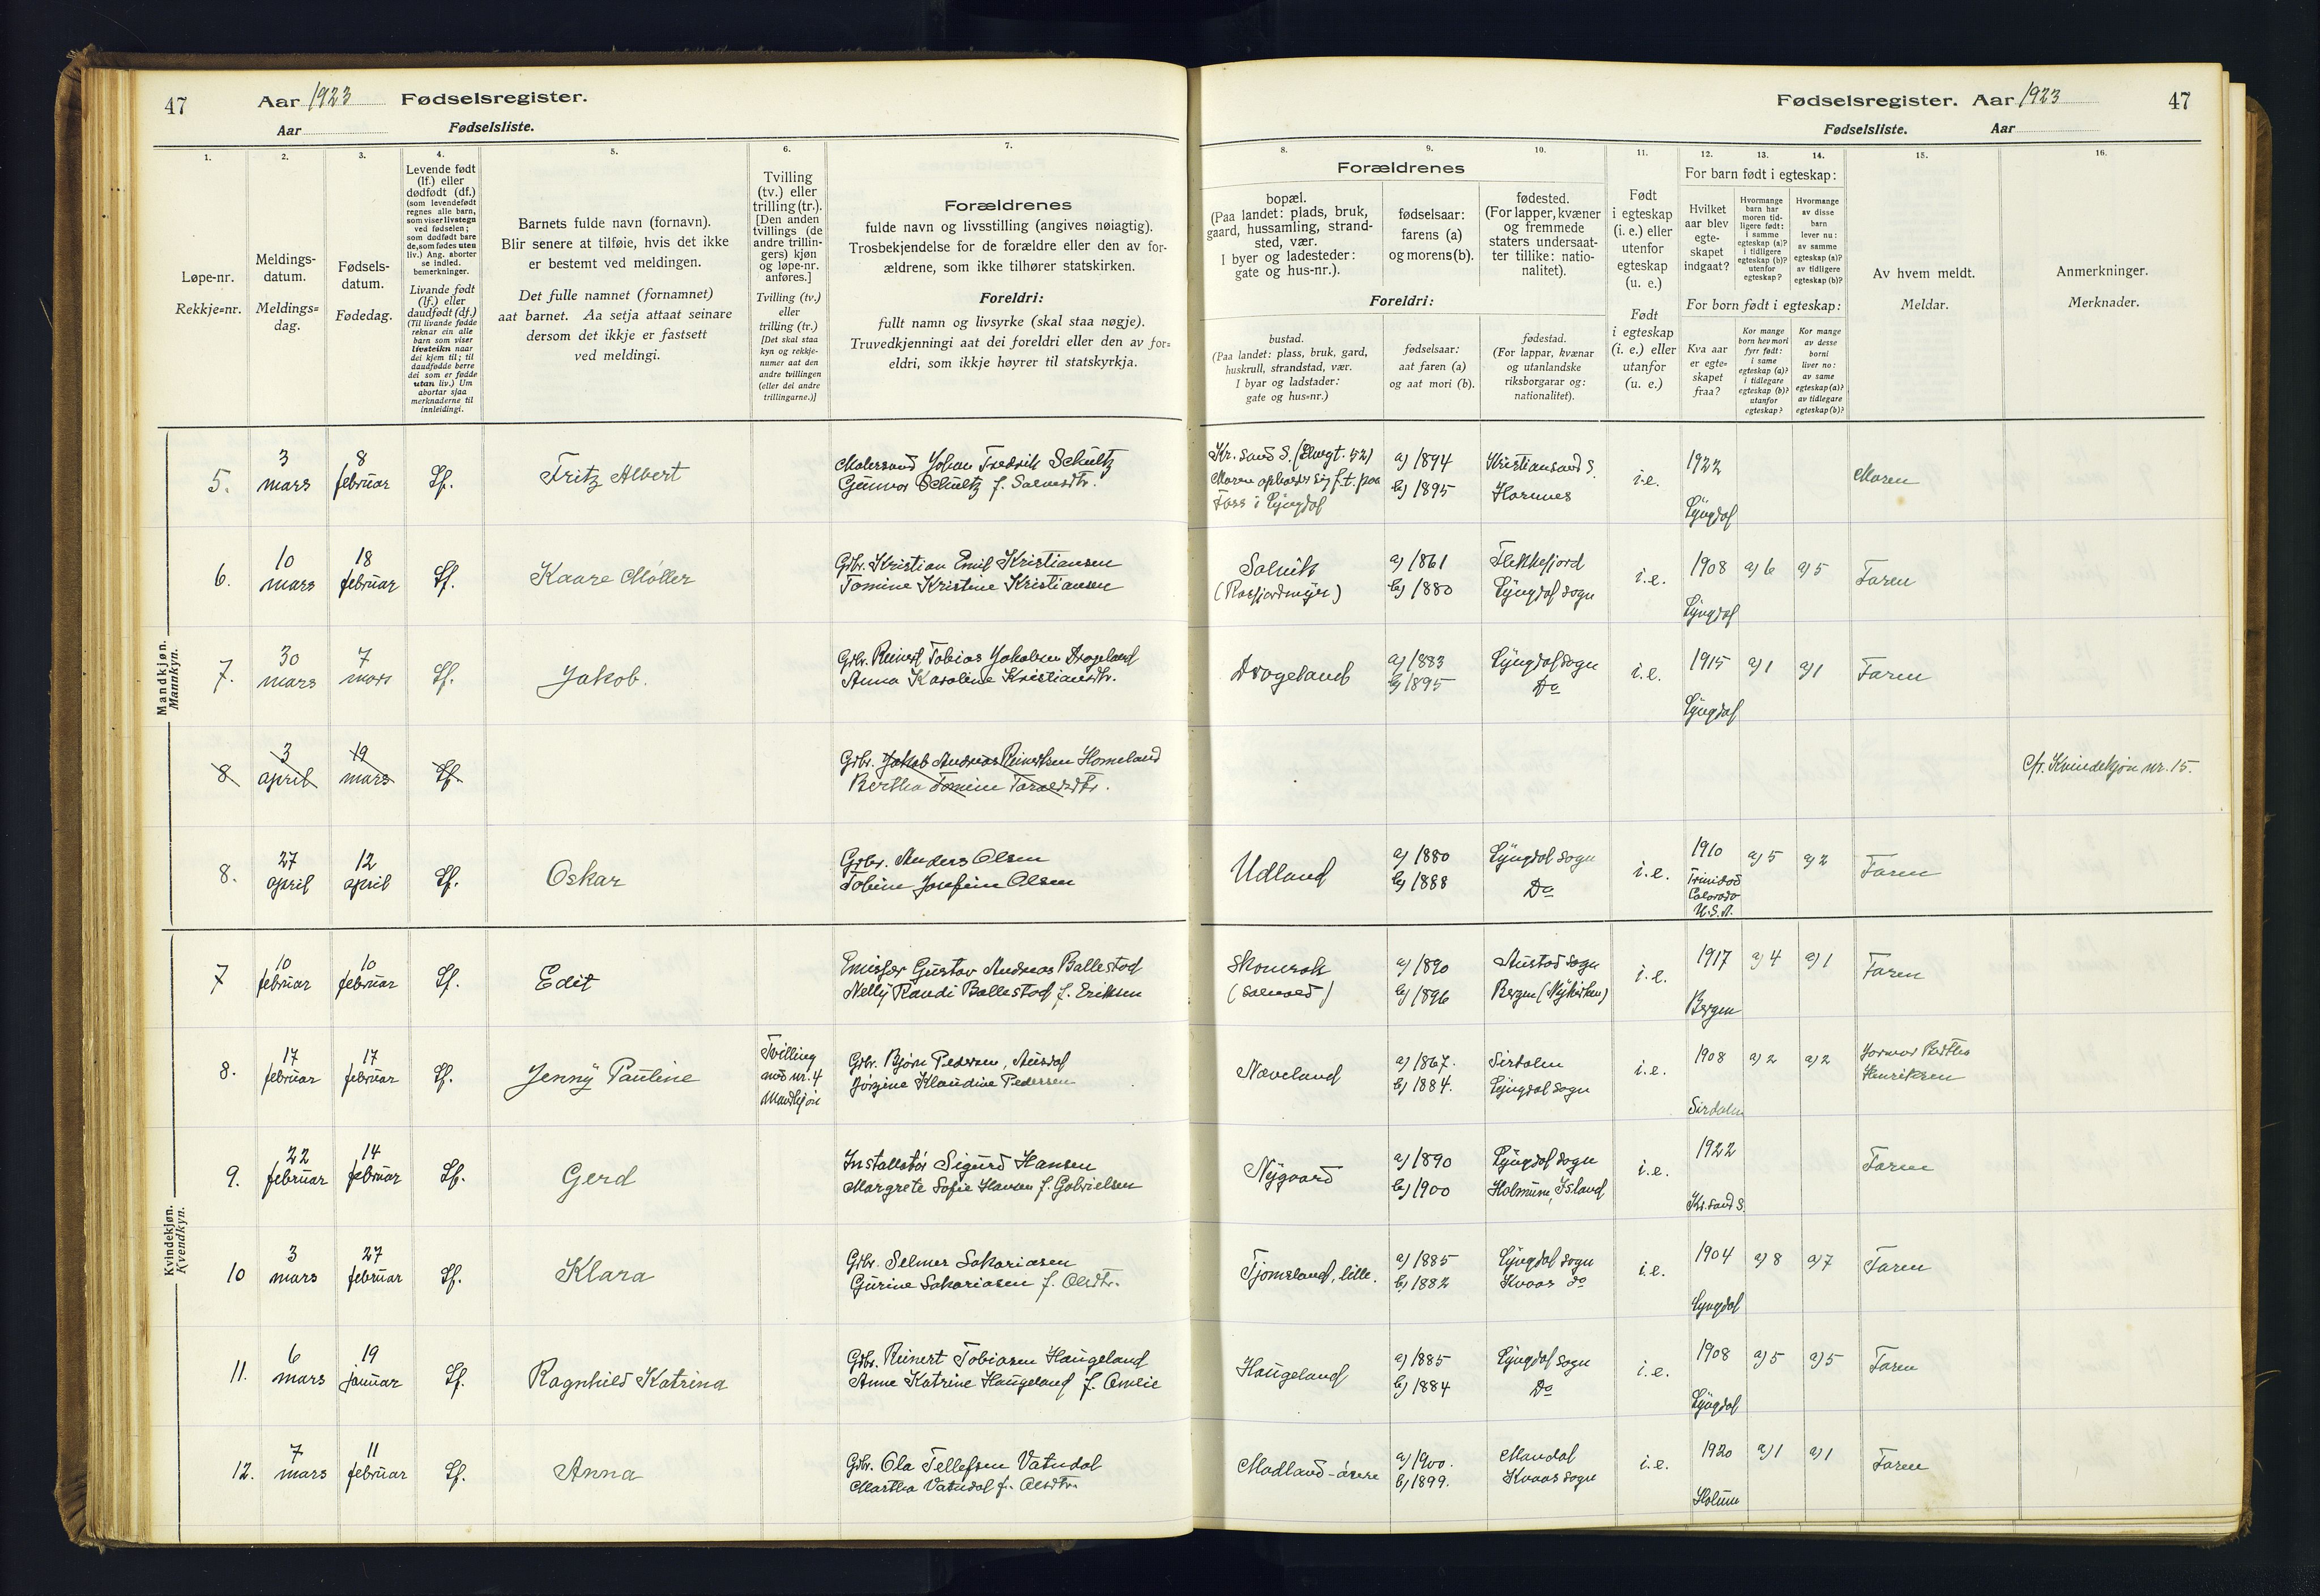 47 Aar 1923 Fødselsregister.
Aar Fødselsliste.
Fødselsregister. Aar 1923 47
Fødselsliste. Aar
1. 2. 3. 4. 5. 6. 7. 8. 9. 10. 11. 12. 13. 14. 15. 16.
Løpe-nr.
Rekkje=nr.
Meldings-
datum.
Meldings=
dag.
Fødsels-
datum.
Fødedag.
Levende født
(lf.) eller
dødfødt (df.)
(som levendefødt
regnes alle barn,
som viser livstegn
ved fødselen;
som dødfødt bare
de, som fødes uten
liv.) Ang. aborter
se indled.
bemerkninger.
Livande født
(lf.) eller
daudfødt (df.)
(Til livande fødde
reknar ein alle
barn som viser
livsteikn naar
dei kjem til; til
daudfødde berre
dei som er fødde
utan liv.) Um
abortar sjaa
merknaderne til
innleidingi.
Barnets fulde navn (fornavn).
Blir senere at tilføie, hvis det ikke
er bestemt ved meldingen.
Det fulle namnet (fornamnet)
aat barnet. Aa setja attaat seinare
dersom det ikkje er fastsett
ved meldingi.
Tvilling
(tv.) eller
trilling (tr.).
[Den anden
tvillings (de
andre trillin-
gers) kjøn
og løpe-nr.
anføres.]
Tvilling (tv.)
eller
trilling (tr.)
[Det skal staa
kyn og rekkje-
numer aat den
andre tvillingen
(eller dei andre
trillingarne.)]
Forældrenes
fulde navn og livsstilling (angives nøiagtig).
Trosbekjendelse for de forældre eller den av for-
ældrene, som ikke tilhører statskirken.
Foreldri:
fullt namn og livsyrke (skal staa nøgje).
Truvedkjenningi aat dei foreldri eller den av for=
eldri, som ikkje høyrer til statskyrkja.
Forældrenes
bopæl.
(Paa landet: plads, bruk,
gaard, hussamling, strand-
sted, vær.
I byer og ladesteder:
gate og hus-nr.).
fødselsaar:
farens (a)
og morens (b).
fødested.
(For lapper, kvæner
og fremmede
staters undersaat-
ter tillike: natio-
nalitet).
Foreldri:
bustad.
(Paa landet: plass, bruk, gard,
huskrull, strandstad, vær.
I byar og ladstader:
gate og hus=nr.)
fødselsaar:
aat faren (a)
og aat mori (b).
fødestad.
(For lappar, kvænar
og utanlandske
riksborgarar og:
nationalitet).
Født
i egteskap
(i. e.) eller
utenfor
egteskap
(u. e.)
Født
i egteskap
(i. e.) eller
utanfor
(u. e.)
For barn født i egteskap:
Hvilket
aar blev
egte-
skapet
indgaat?
Hvormange
barn har
moren tid-
ligere født:
i samme
egteskap (a)?
i tidligere
egteskap (b)?
utenfor
egteskap?
Hvormange
av disse
barn
lever nu:
av samme
egteskap (a)?
av tidligere
egteskap (b)?
For born født i egteskap:
Kva aar
er egte-
skapet
fraa?
Kor mange
born hev mori
fyrr født:
i same
egteskap (a)?
i tidlegare
egteskap (b)?
utanfor
egteskap?
Kor mange
av desse
borni
liver no:
av same
egteskap (a)?
av tidlegare
egteskap (b)?
Av hvem meldt.
Meldar.
Anmerkninger.
Merknader.
Mandkjøn.
Mannkyn.
5. 3 mars 8 februar Lf. Fritz Albert
Johan Fredrik Schultz
Gunvor Schultz f.
Kr.sand S. (Elvegt. 52)
Moren opholder sig f.t. paa
Foss i Lyngdal
a) 1894
b) 1895
Kristiansand S.
Hornnes
i.e. 1922 Lyngdal Moren
6. 10 mars 18 februar Lf. Kaare Møller
Grbr. Kristian Emil Kristiansen
Tomine Kristine Kristiansen
(Rosfjordmyr)
a) 1861
b) 1880
Flekkefjord
Lyngdal sogn
i.e. 1908 Lyngdal a) 6 a) 5 Faren
7. 30 mars 7 mars Lf. Jakob.
Grbr. Reinert Tobias Jakobsen Drageland
Anna Karoline Kristiansdtr.
Drageland
a) 1883
b) 1895
Lyngdal sogn
Do
i.e. 1915 Lyngdal a) 1 a) 1 Faren
8 3 april 19 mars Lf.
Grbr. Jakob Andreas Reinertsen Homeland
Bertha Tomine Taraldsdtr.
Cfr. Kvindekjøn nr. 15.
8. 27 april 12 april Lf. Oskar
Grbr. Anders Olsen
Tobine Josefine Olsen
Udland
a) 1880
b) 1888
Lyngdal sogn
Do
i.e. 1910 Trinidad Colorado U.S.A. a) 5 a) 2 Faren
Kvindekjøn.
Kvendkyn.
7 10 februar 10 februar Lf. Edit
Emissær Gustav Andreas Ballestad
Nelly Randi Ballestad f. Eriksen
Skomrak
a) 1890
b) 1896
Austad sogn
Bergen (Nykirken)
i.e. 1917 Bergen a) 4 a) 1 Faren
8. 17 februar 17 februar Lf. Jenny Pauline
Tvilling
med nr. 4
Mandkjøn
Grbr. Bjørn Pedersen, Ausdal
Jørgine Klaudine Pedersen
Nøveland
a) 1867.
b) 1884.
Sirdalen
Lyngdal sogn
i.e. 1908 Sirdalen a) 2 a) 2 Jormor Bertha
Henriksen
9. 22 februar 14 februar Lf. Gerd
Installatør Sigurd Hansen
Margrete Sofie Hansen f. Gabrielsen
Nygaard
a) 1890
b) 1900
Lyngdal sogn
Island
i.e. 1922 Kr.sand S. Faren
10 3 mars 27 februar Lf. Klara
Grbr. Selmer Sakariasen
Gurine Sakariasen f. Olsdtr.
Tjomsland, lille.
a) 1885
b) 1882
Lyngdal sogn
Kvaas do
i.e. 1904 Lyngdal a) 8 a) 7 Faren
11. 6 mars 19 januar Lf. Ragnhild Katrina
Grbr. Reinert Tobiasen Haugeland
Anne Katrine Haugeland f. Omlie
Haugeland
a) 1885
b) 1884
Lyngdal sogn
Do
i.e. 1908 Lyngdal a) 5 a) 5 Faren
12. 7 mars 11 februar Lf. Anna
Grbr. Ola Tellefsen Vatndal
Martha Vatndal f. Olsdtr.
Modland-øvre
a) 1900.
b) 1899.
Mandal
Kvaas sogn
i.e. 1920 Holum a) 1 a) 1 Faren